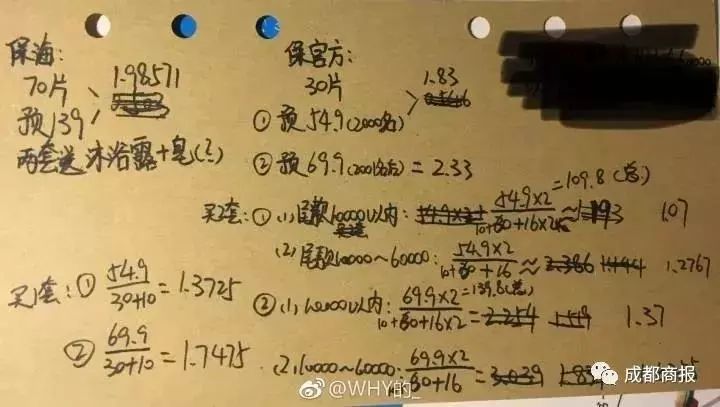 保海:
70片 1.98571
预139
两套送沐浴露+皂(?)
保官方:
30片 1.83
① 预54.9(2000名)
② 预69.9(2001名后)=2.33
买2套: ①(1)尾款10000以内: 54.9×2=109.8(总)
10+60+16×2 ≈ 1.07
(2)尾款10000~60000: 54.9×2
10+60+16 ≈ 1.2767
②(1)10000以内: 69.9×2=139.8(总)
10+60+16×2 = 1.37
(2)10000~60000: 69.9×2
60+16 =
买1套: ① 54.9
30+10 =1.3725
② 69.9
30+10 =1.7475
@WHY的_
成都商报